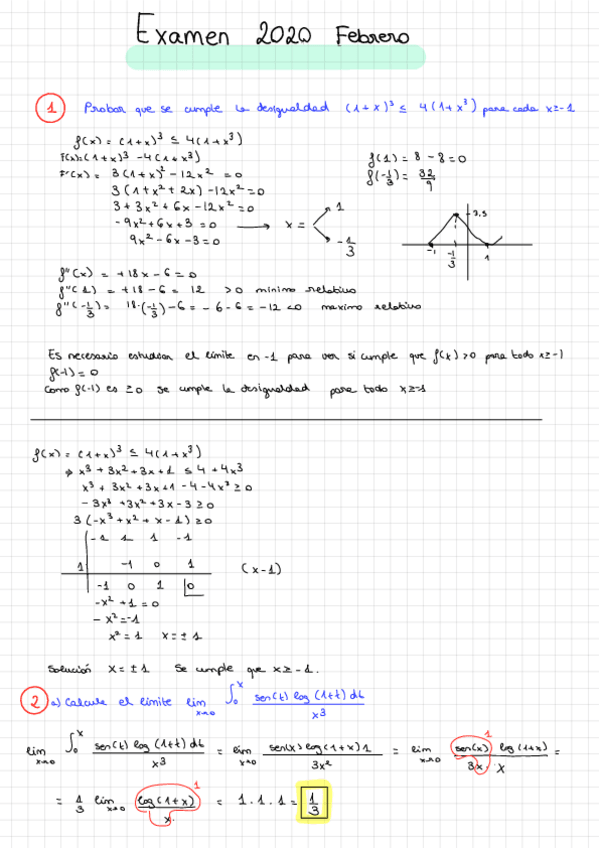 Examen 2020 Febrero
1 Probar que se cumple la desigualdad (1+x)³ ≤ 4(1+x³) para cada x≥-1
f(x) = (1+x)³ ≤ 4(1+x³)
F(x)=(1+x)³ -4(1+x³)
F'(x) = 3(1+x)² -12x² = 0
3(1+x²+2x) -12x² = 0
3+3x²+6x-12x² = 0
-9x²+6x+3 = 0 → x = 1
-1/3
9x²-6x-3=0
f(1) = 8-8=0
f(-1/3) = 32/9
3,5
-1 -1/3 1
f''(x) = +18x-6=0
f''(1) = +18-6 = 12 >0 minimo relativo
f''(-1/3) = 18·(-1/3)-6 = -6-6 = -12 <0 maximo relativo
Es necesario estudiar el límite en -1 para ver si cumple que f(x)>0 para todo x≥-1
f(-1) = 0
Como f(-1) es ≥0 se cumple la desigualdad para todo x≥-1
f(x) = (1+x)³ ≤ 4(1+x³)
x³+3x²+3x+1 ≤ 4+4x³
x³+3x²+3x+1-4-4x³ ≥ 0
-3x³+3x²+3x-3≥0
3(-x³+x²+x-1)≥0
-1 1 1 -1
1 -1 0 1
-1 0 1 0 (x-1)
-x²+1=0
-x²=-1
x²=1 x=±1
Solución x=±1 Se cumple que x≥-1.
2 a) Calcule el límite lim x→0 ∫₀ˣ sen(t) log(1+t) dt / x³
lim x→0 ∫₀ˣ sen(t) log(1+t) dt / x³ = lim x→0 sen(x) log(1+x) 1 / 3x² = lim x→0 sen(x) log(1+x) / 3x · x = 1
= 1/3 lim x→0 log(1+x) / x = 1·1·1 = 1/3 1